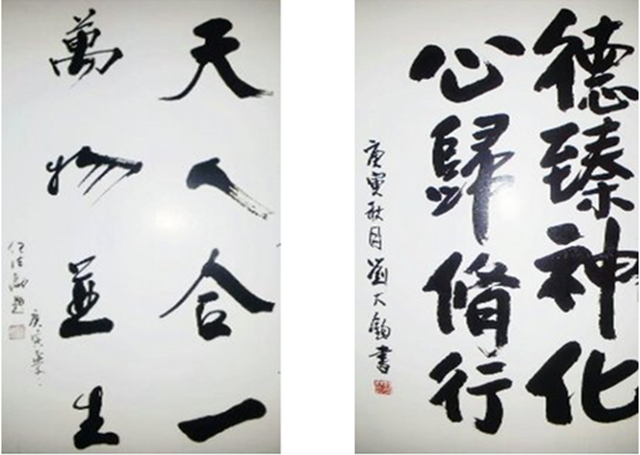 天人合一
萬物並生
庚寅
任法融題
德臻神化
心歸脩行
庚寅秋月劉大鈞書